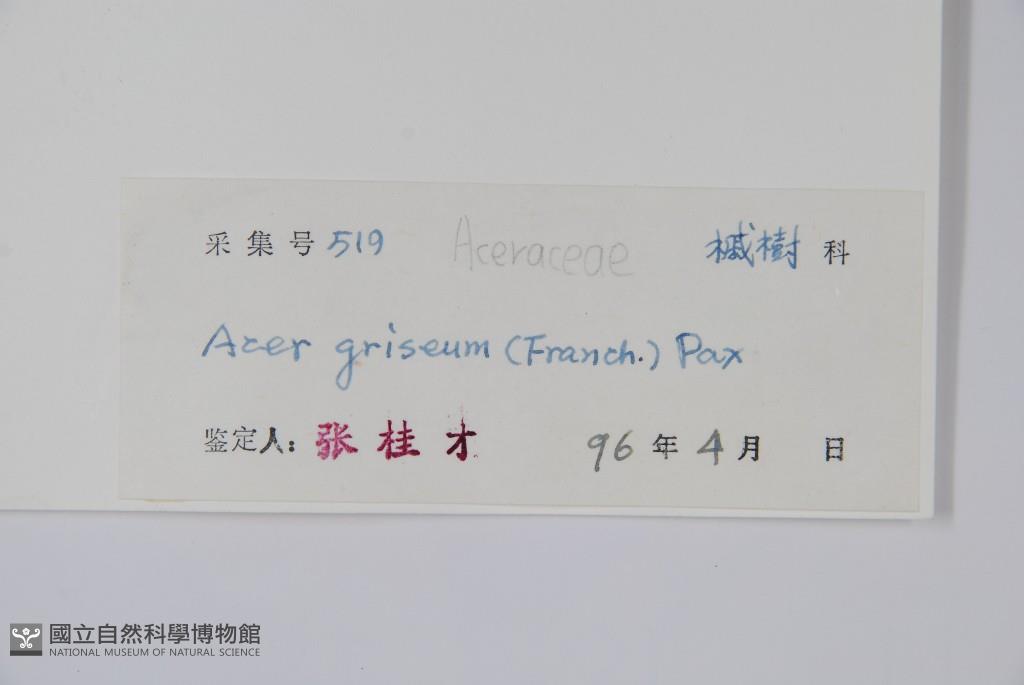 采集号 519 Aceraceae 槭樹 科
Acer griseum (Franch.) Pax
鉴定人: 张桂才 96 年 4 月 日
國立自然科學博物館
NATIONAL MUSEUM OF NATURAL SCIENCE